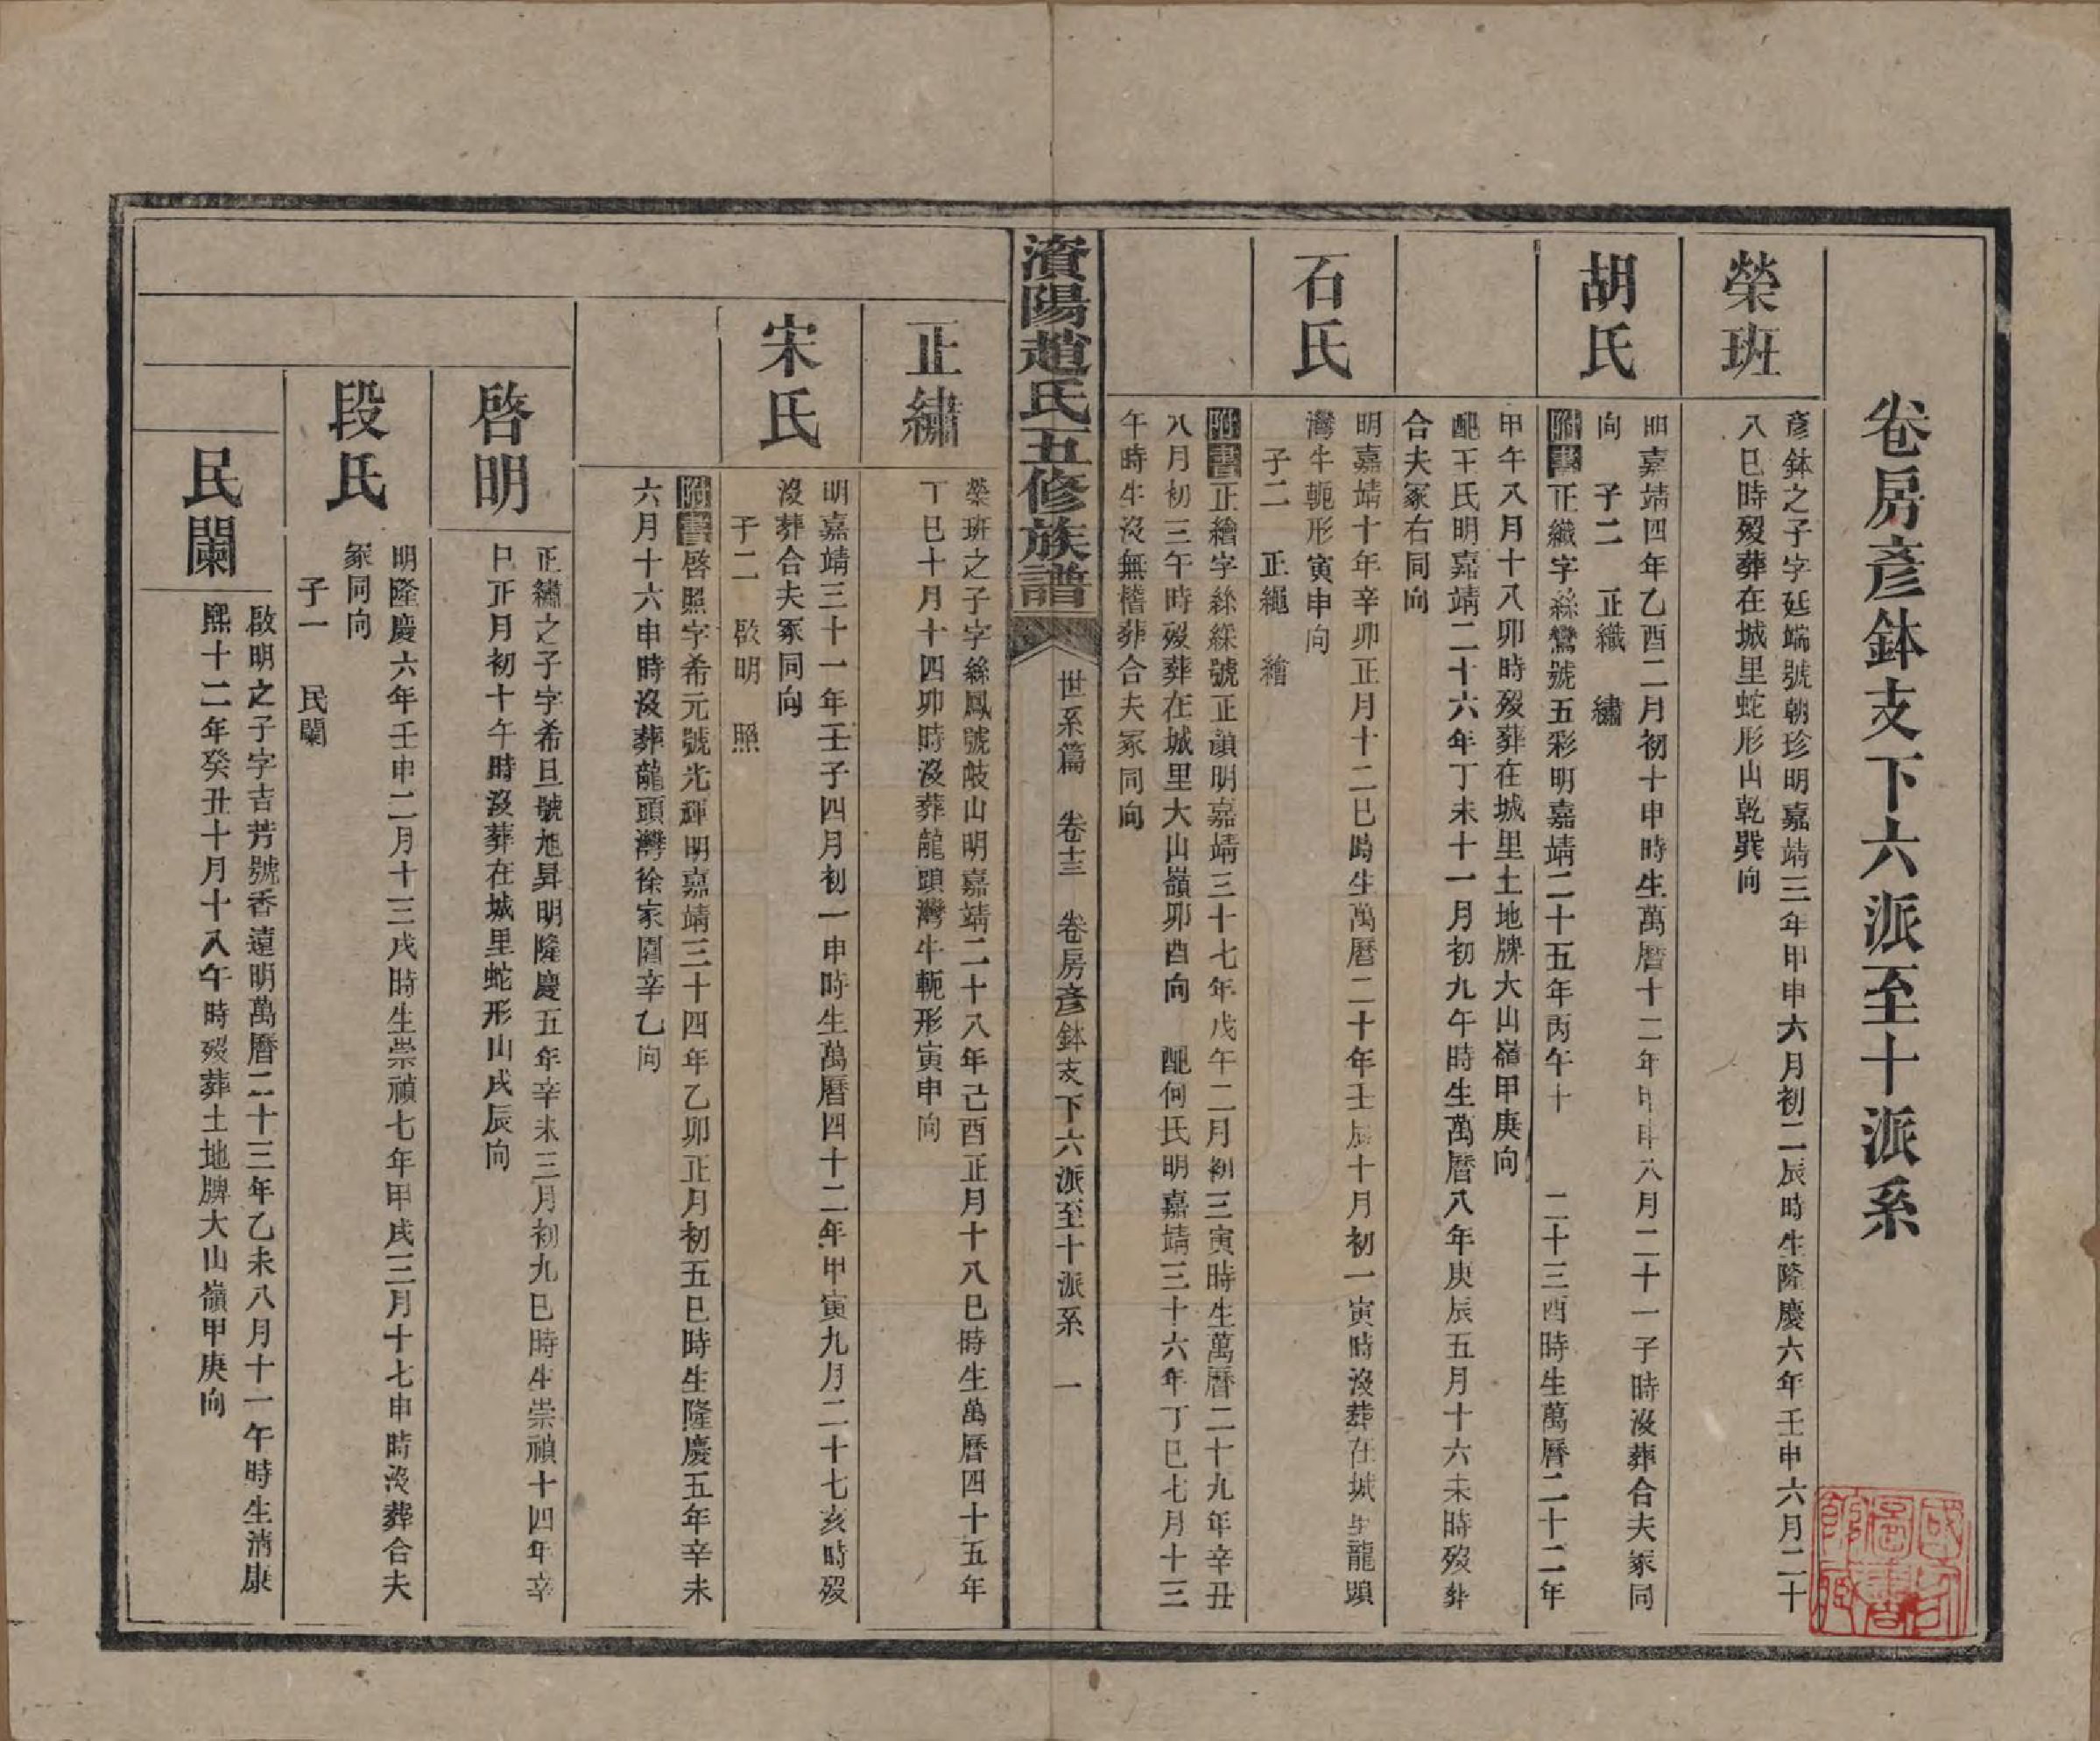 卷房彥鉢支下六派至十派系
榮班
彥鉢之子字廷端號朝珍明嘉靖三年甲申六月初二辰時生隆慶六年壬申六月二十
八巳時歿葬在城里蛇形山乾巽向
胡氏
明嘉靖四年乙酉二月初十申時生萬曆十二年甲申八月二十一子時沒葬合夫冢同
向 子二 正織 繡
附書正織字絲鸞號五彩明嘉靖二十五年丙午十 二十三酉時生萬曆二十二年
甲午八月十八卯時歿葬在城里土地牌大山嶺甲庚向
配王氏明嘉靖二十六年丁未十一月初九午時生萬曆八年庚辰五月十六未時歿葬
合夫冢右同向
石氏
明嘉靖十年辛卯正月十二巳時生萬曆二十年壬辰十月初一寅時沒葬在城里龍頭
灣牛軛形寅申向
子二 正繩 繪
附書正繪字絲綵號正顔明嘉靖三十七年戊午二月初三寅時生萬曆二十九年辛丑
八月初三午時歿葬在城里大山嶺卯酉向 配何氏明嘉靖三十六年丁巳七月十三
午時生沒無稽葬合夫冢同向
濱陽趙氏五修族譜
世系篇 卷十三 卷房彥鉢支下六派至十派系 一
正繡
榮班之子字絲鳳號岐山明嘉靖二十八年己酉正月十八巳時生萬曆四十五年
丁巳十月十四卯時沒葬龍頭灣牛軛形寅申向
宋氏
明嘉靖三十一年壬子四月初一申時生萬曆四十二年甲寅九月二十七亥時歿
沒葬合夫冢同向
子二 啟明 照
附書啓照字希元號光輝明嘉靖三十四年乙卯正月初五巳時生隆慶五年辛未
六月十六申時沒葬龍頭灣徐家園辛乙向
啓明
正繡之子字希旦號旭昇明隆慶五年辛未三月初九巳時生崇禎十四年辛
巳正月初十午時沒葬在城里蛇形山戌辰向
段氏
明隆慶六年壬申二月十三戌時生崇禎七年甲戌三月十七申時沒葬合夫
冢同向
子一 民闌
民闌
啟明之子字吉芳號香遠明萬曆二十三年乙未八月十一午時生淸康
熙十二年癸丑十月十八午時歿葬土地牌大山嶺甲庚向